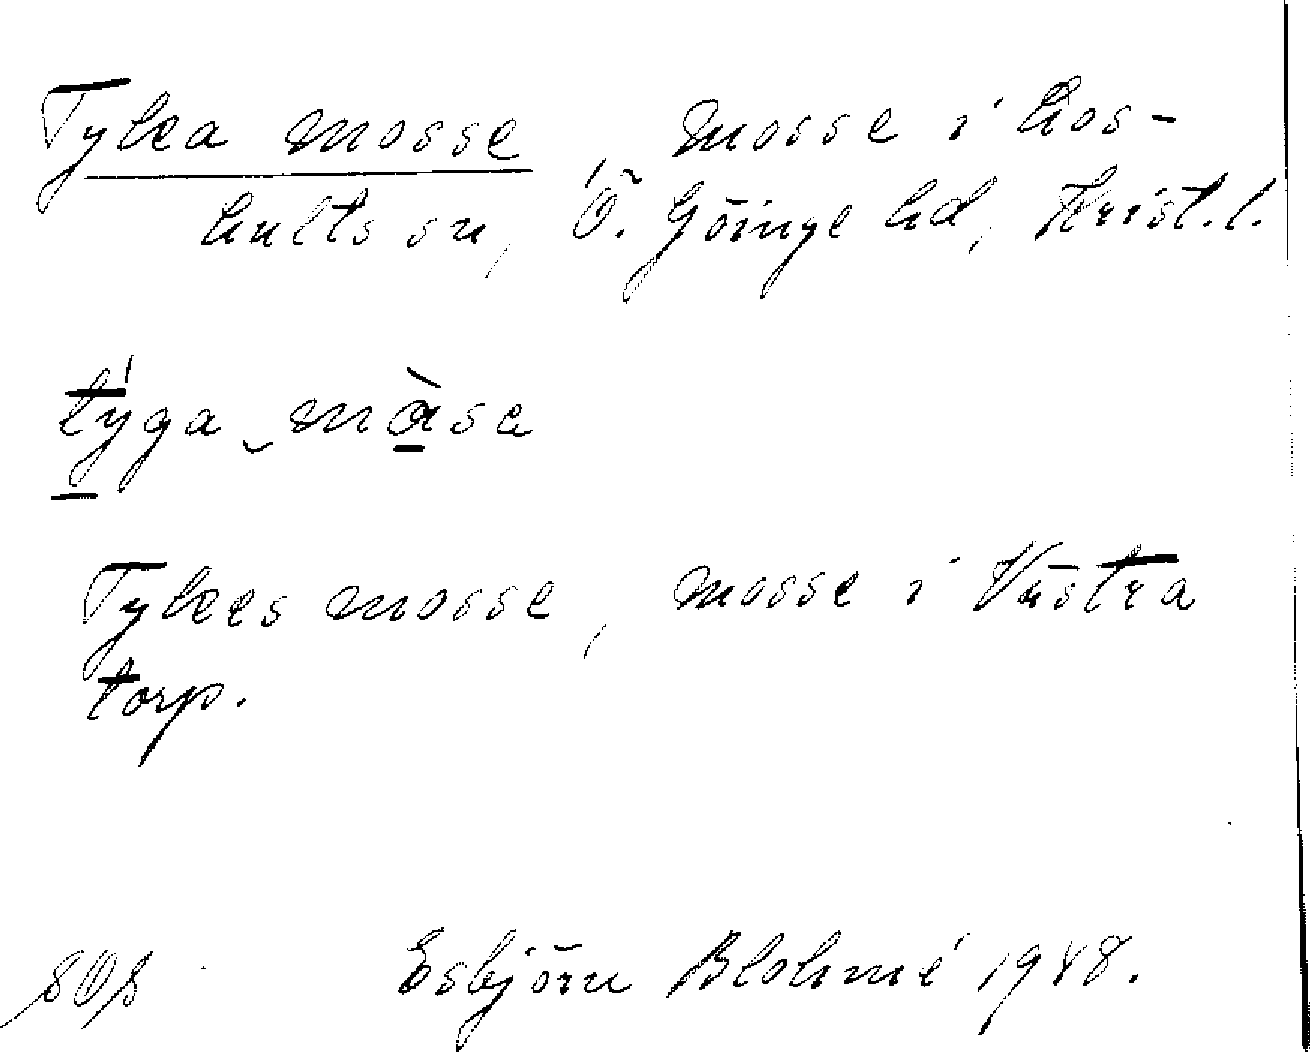 Tyka mosse, mosse i Los-
hults sn, Ö. Göinge hd, Krist. l.
týga ˬ màsa
Tykes mosse, mosse i Västra
torp.
Esbjörn Blohmé 1948.